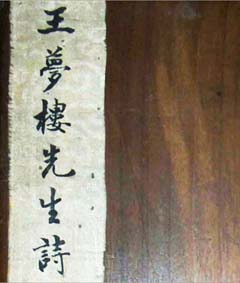 王夢樓先生詩